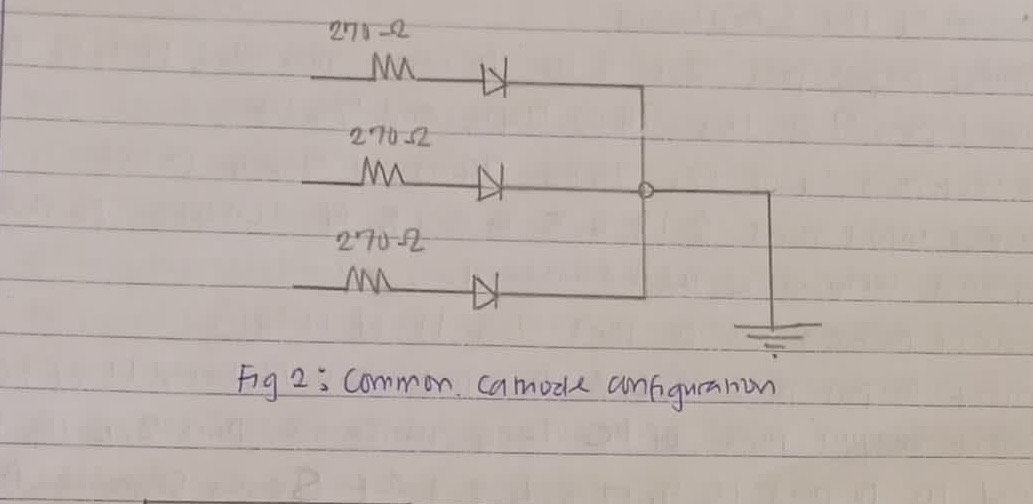 270Ω
270Ω
270Ω
Fig 2: Common camode configuration